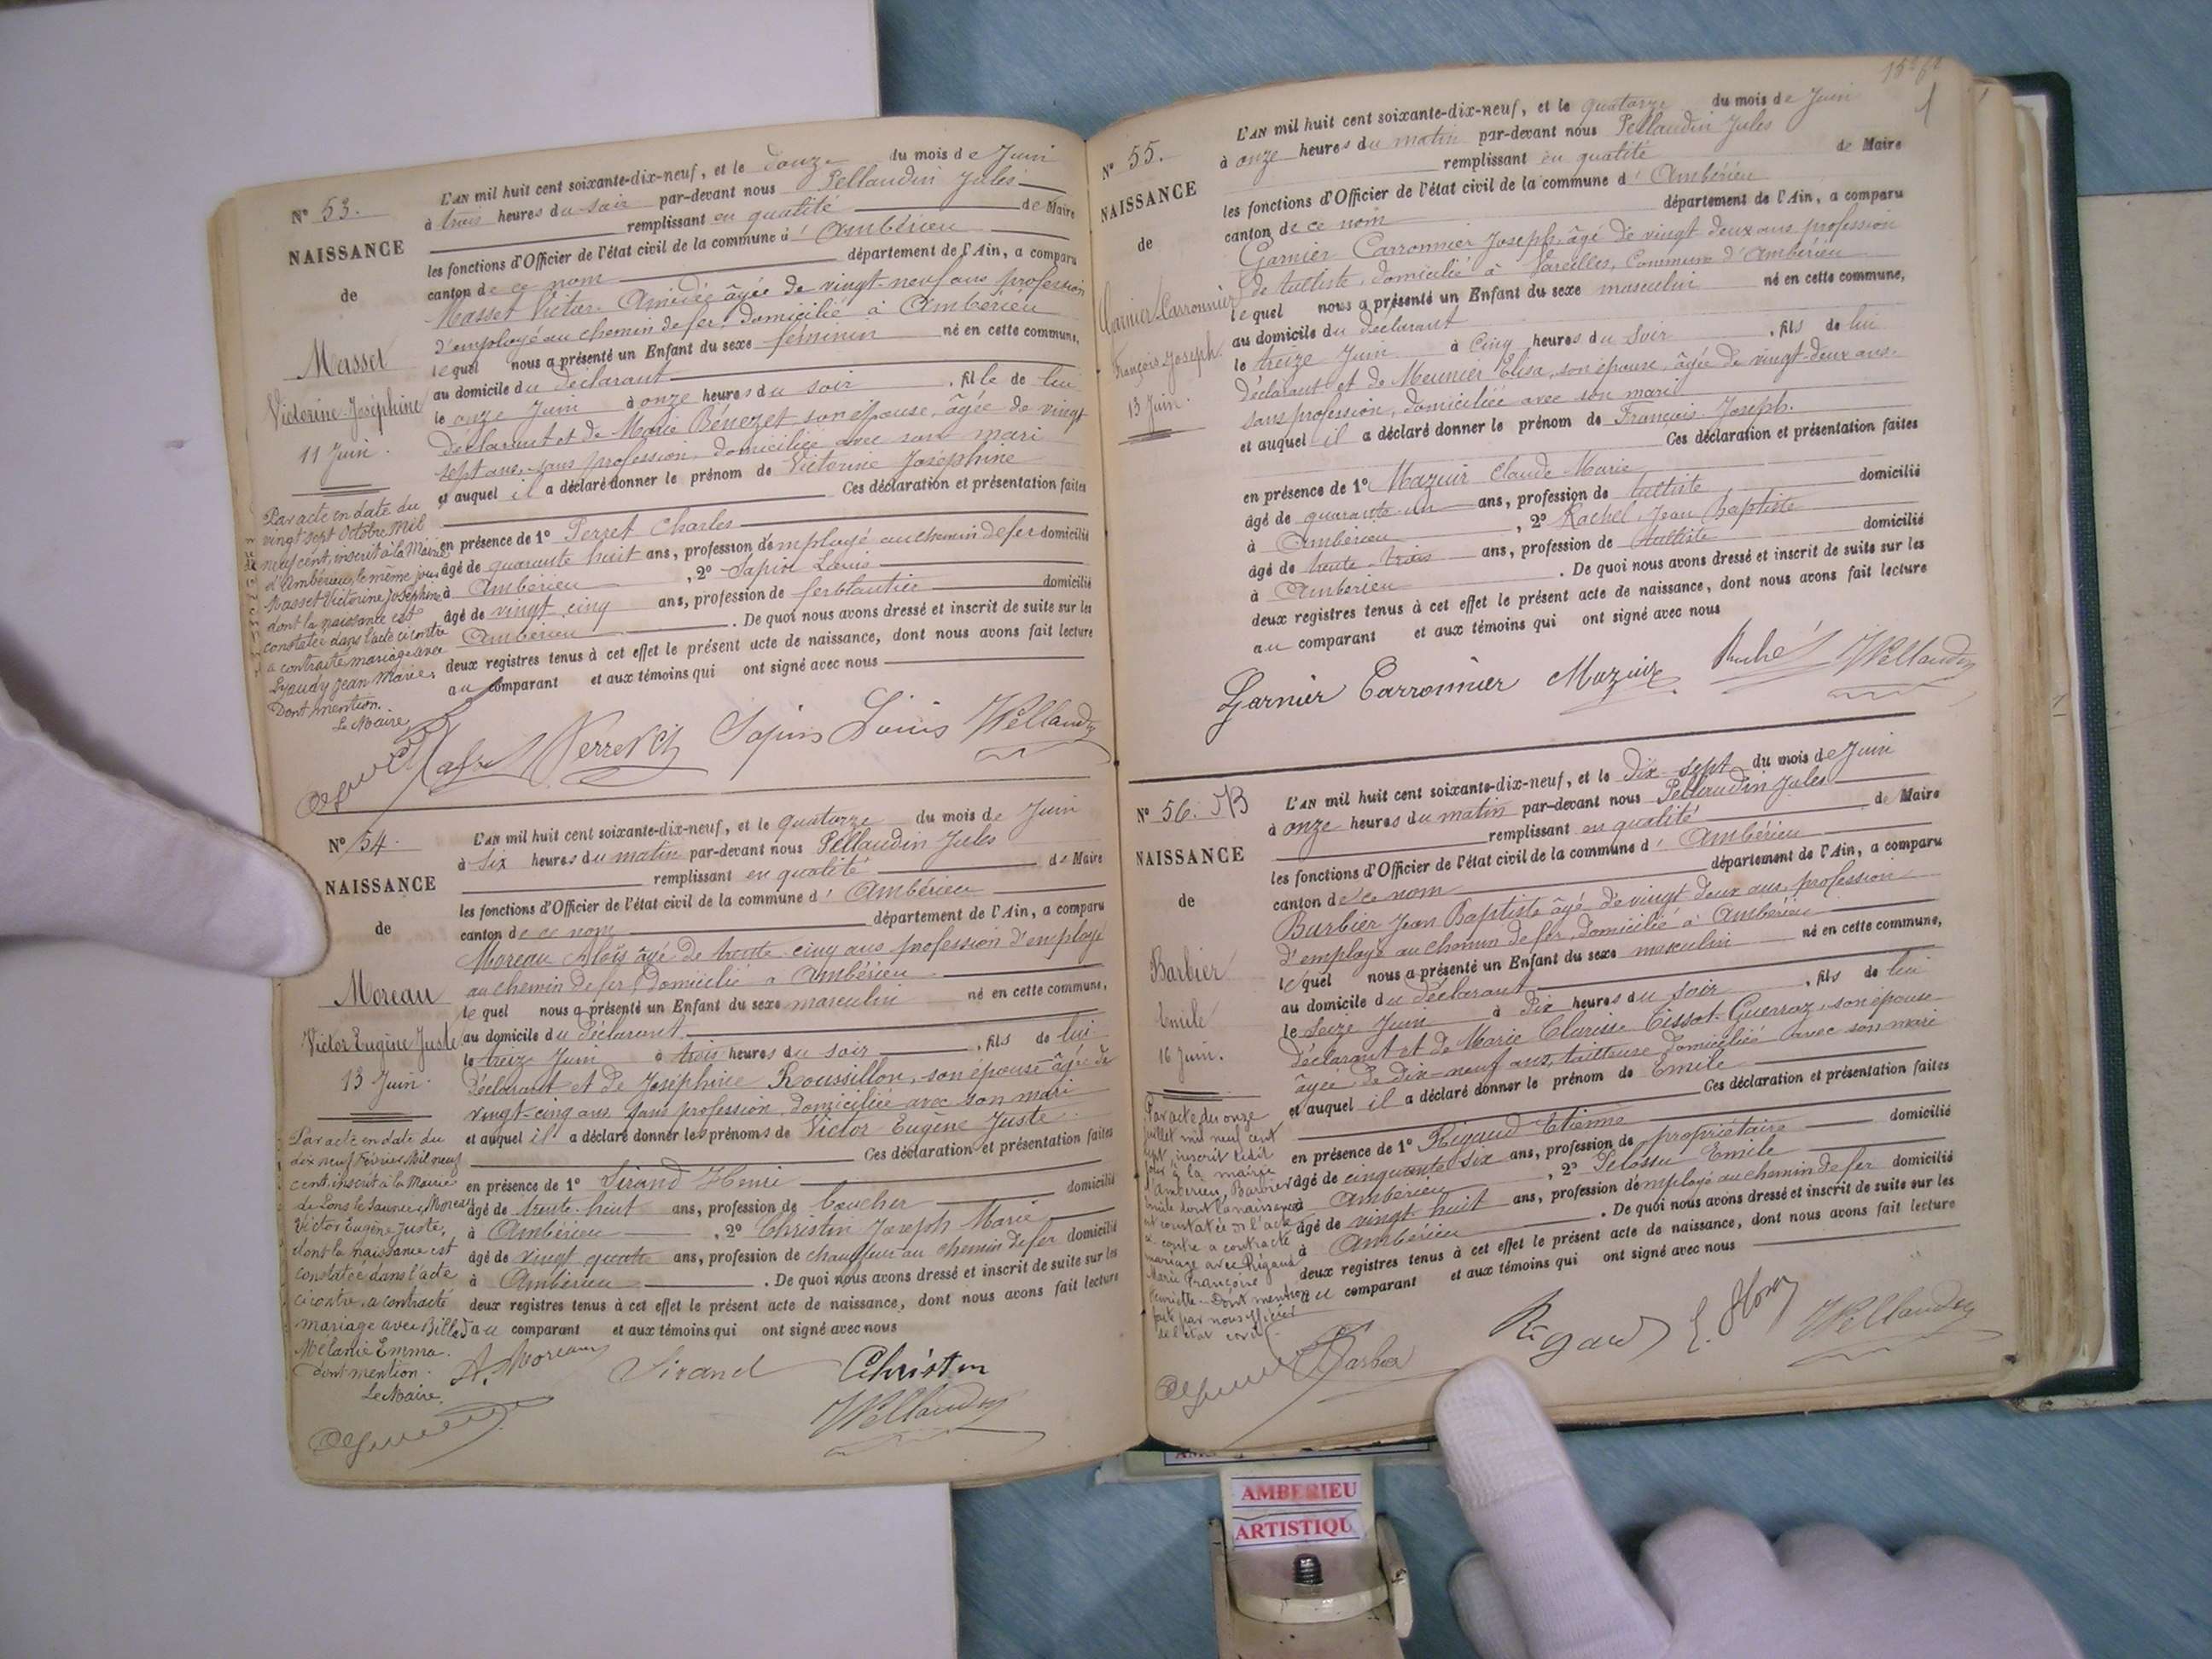 N° 53.
NAISSANCE
de
Masset
Victorine Joséphine
11 Juin.
Par acte en date du
vingt sept Octobre mil
neuf cent, inscrit à la Mairie
d'Ambérieu, le même jour,
Masset Victorine Joséphine
dont la naissance est
constatée dans l'acte ci contre
a contracté mariage avec
Jean Marie,
Dont mention.
Le Maire
L'AN mil huit cent soixante-dix-neuf, et le douze du mois de Juin
à trois heures du soir par-devant nous Pellaudin Jules
remplissant en qualité de Maire
les fonctions d'Officier de l'état civil de la commune d'Ambérieu
canton de ce nom département de l'Ain, a comparu
Masset Victor Amédée âgé de vingt-neuf ans profession
d'employé au chemin de fer, domicilié à Ambérieu
lequel nous a présenté un Enfant du sexe féminin né en cette commune,
au domicile du déclarant
le onze Juin à onze heures du soir, fille de lui
déclarant et de Marie Bénezet son épouse, âgée de vingt
sept ans, sans profession, domiciliée avec son mari
et auquel il a déclaré donner le prénom de Victorine Joséphine
Ces déclaration et présentation faites
en présence de 1° Perret Charles
âgé de quarante huit ans, profession d'employé au chemin de fer domicilié
à Ambérieu, 2° Sapin Louis
âgé de vingt cinq ans, profession de ferblantier domicilié
Ambérieu. De quoi nous avons dressé et inscrit de suite sur les
deux registres tenus à cet effet le présent acte de naissance, dont nous avons fait lecture
au comparant et aux témoins qui ont signé avec nous
Sapin Louis JPellaudin
N° 54.
NAISSANCE
de
Moreau
Victor Eugène Juste
13 Juin.
Par acte en date du
dix neuf Février Mil neuf
cent, inscrit à la Mairie
de Lons le Saunier, Moreau
Victor Eugène Juste,
dont la naissance est
constatée dans l'acte
ci contre, a contracté
mariage avec Billed
Mélanie Emma.
dont mention.
Le Maire,
L'AN mil huit cent soixante-dix-neuf, et le quatorze du mois de Juin
à six heures du matin par-devant nous Pellaudin Jules
remplissant en qualité de Maire
les fonctions d'Officier de l'état civil de la commune d'Ambérieu
canton de ce nom département de l'Ain, a comparu
Moreau Aloïs âgé de trente cinq ans profession d'employé
au chemin de fer, domicilié à Ambérieu
lequel nous a présenté un Enfant du sexe masculin né en cette commune,
au domicile du déclarant
le treize Juin à trois heures du soir, fils de lui
déclarant et de Joséphine Roussillon, son épouse âgée de
vingt-cinq ans sans profession domiciliée avec son mari
et auquel il a déclaré donner les prénoms de Victor Eugène Juste
Ces déclaration et présentation faites
en présence de 1° Sirand Henri
âgé de trente-huit ans, profession de boucher domicilié
à Ambérieu, 2° Christin Joseph Marie
âgé de vingt quatre ans, profession de chauffeur au chemin de fer domicilié
à Ambérieu. De quoi nous avons dressé et inscrit de suite sur les
deux registres tenus à cet effet le présent acte de naissance, dont nous avons fait lecture
au comparant et aux témoins qui ont signé avec nous
A. Moreau Sirand Christin
JPellaudin
N° 55.
NAISSANCE
de
Garnier Carronnier
François Joseph
13 Juin.
L'AN mil huit cent soixante-dix-neuf, et le quatorze du mois de Juin
à onze heures du matin par-devant nous Pellaudin Jules
remplissant en qualité de Maire
les fonctions d'Officier de l'état civil de la commune d'Ambérieu
canton de ce nom département de l'Ain, a comparu
Garnier Carronnier Joseph, âgé de vingt deux ans profession
de tulliste, domicilié à Vareilles, Commune d'Ambérieu
lequel nous a présenté un Enfant du sexe masculin né en cette commune,
au domicile du déclarant
le treize Juin à cinq heures du soir, fils de lui
déclarant et de Meunier Elisa, son épouse, âgée de vingt-deux ans,
sans profession, domiciliée avec son mari
et auquel il a déclaré donner le prénom de François Joseph.
Ces déclaration et présentation faites
en présence de 1° Mazuir Claude Marie
âgé de quarante-un ans, profession de tulliste domicilié
à Ambérieu, 2° Rachel Jean Baptiste
âgé de trente-trois ans, profession de tulliste domicilié
à Ambérieu. De quoi nous avons dressé et inscrit de suite sur les
deux registres tenus à cet effet le présent acte de naissance, dont nous avons fait lecture
au comparant et aux témoins qui ont signé avec nous
Garnier Carronnier Mazuir JPellaudin
N° 56.
NAISSANCE
de
Barbier
Emile
16 Juin.
Par acte du onze
juillet mil neuf cent
sept inscrit ledit
jour à la mairie
d'Ambérieu, Barbier
Emile dont la naissance
est constatée en l'acte
ci contre a contracté
mariage avec Rigaud
Marie Françoise
Henriette. Dont mention
faite par nous officier
de l'état civil
L'AN mil huit cent soixante-dix-neuf, et le dix-sept du mois de Juin
à onze heures du matin par-devant nous Pellaudin Jules
remplissant en qualité de Maire
les fonctions d'Officier de l'état civil de la commune d'Ambérieu
canton de ce nom département de l'Ain, a comparu
Barbier Jean Baptiste âgé de vingt deux ans, profession
d'employé au chemin de fer, domicilié à Ambérieu
lequel nous a présenté un Enfant du sexe masculin né en cette commune,
au domicile du déclarant
le seize Juin à dix heures du soir, fils de lui
déclarant et de Marie Clarisse Tissot-Guerraz, son épouse
âgée de dix-neuf ans, tailleuse domiciliée avec son mari
et auquel il a déclaré donner le prénom de Emile
Ces déclaration et présentation faites
en présence de 1° Rigaud Etienne
âgé de cinquante six ans, profession de propriétaire domicilié
à Ambérieu, 2° Emile
âgé de vingt huit ans, profession d'employé au chemin de fer domicilié
à Ambérieu. De quoi nous avons dressé et inscrit de suite sur les
deux registres tenus à cet effet le présent acte de naissance, dont nous avons fait lecture
au comparant et aux témoins qui ont signé avec nous
Barbier Rigaud JPellaudin
AMBERIEU
ARTISTIQU